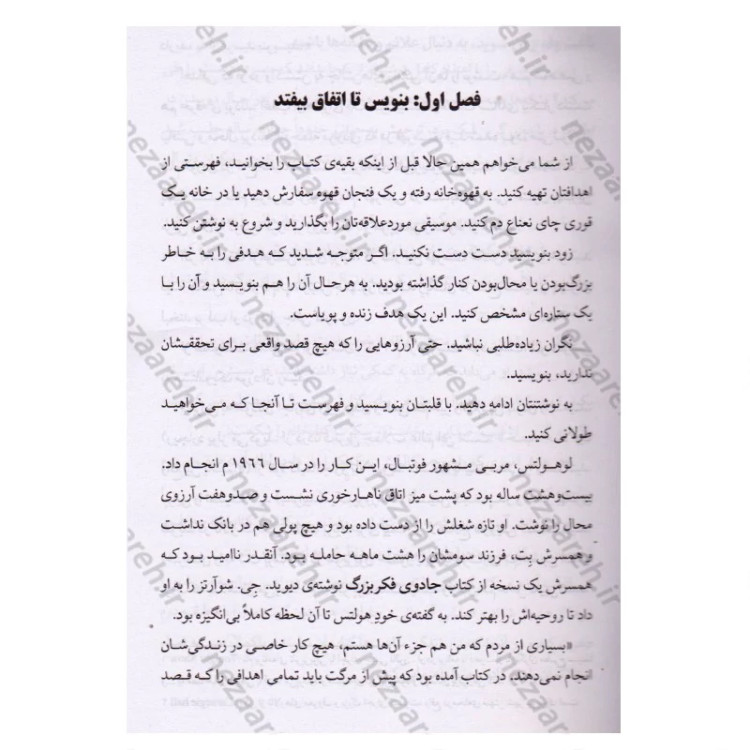 فصل اول: بنویس تا اتفاق بیفتد
از شما می‌خواهم همین حالا قبل از اینکه بقیه‌ی کتاب را بخوانید، فهرستی از
اهدافتان تهیه کنید. به قهوه‌خانه رفته و یک فنجان قهوه سفارش دهید یا در خانه یک
قوری چای نعناع دم کنید. موسیقی موردعلاقه‌تان را بگذارید و شروع به نوشتن کنید.
زود بنویسید دست دست نکنید. اگر متوجه شدید که هدفی را به خاطر
بزرگ‌بودن یا محال‌بودن کنار گذاشته بودید. به هرحال آن را هم بنویسید و آن را با
یک ستاره‌ای مشخص کنید. این یک هدف زنده و پویاست.
نگران زیاده‌طلبی نباشید. حتی آرزوهایی را که هیچ قصد واقعی برای تحققشان
ندارید، بنویسید.
به نوشتنتان ادامه دهید. با قلبتان بنویسید و فهرست تا آنجا که می‌خواهید
طولانی کنید.
لوهولتس، مربی مشهور فوتبال، این کار را در سال ۱۹۶۶ م انجام داد.
بیست‌وهشت ساله بود که پشت میز اتاق ناهارخوری نشست و صدوهفت آرزوی
محال را نوشت. او تازه شغلش را از دست داده بود و هیچ پولی هم در بانک نداشت
و همسرش بِت، فرزند سومشان را هشت ماهه حامله بود. آنقدر ناامید بود که
همسرش یک نسخه از کتاب جادوی فکر بزرگ نوشته‌ی دیوید. جِی. شوارتز را به او
داد تا روحیه‌اش را بهتر کند. به گفته‌ی خودِ هولتس تا آن لحظه کاملاً بی‌انگیزه بود.
«بسیاری از مردم که من هم جزء آن‌ها هستم، هیچ کار خاصی در زندگی‌شان
انجام نمی‌دهند. در کتاب آمده بود که پیش از مرگت باید تمامی اهدافی را که قصد
nezaareh.ir